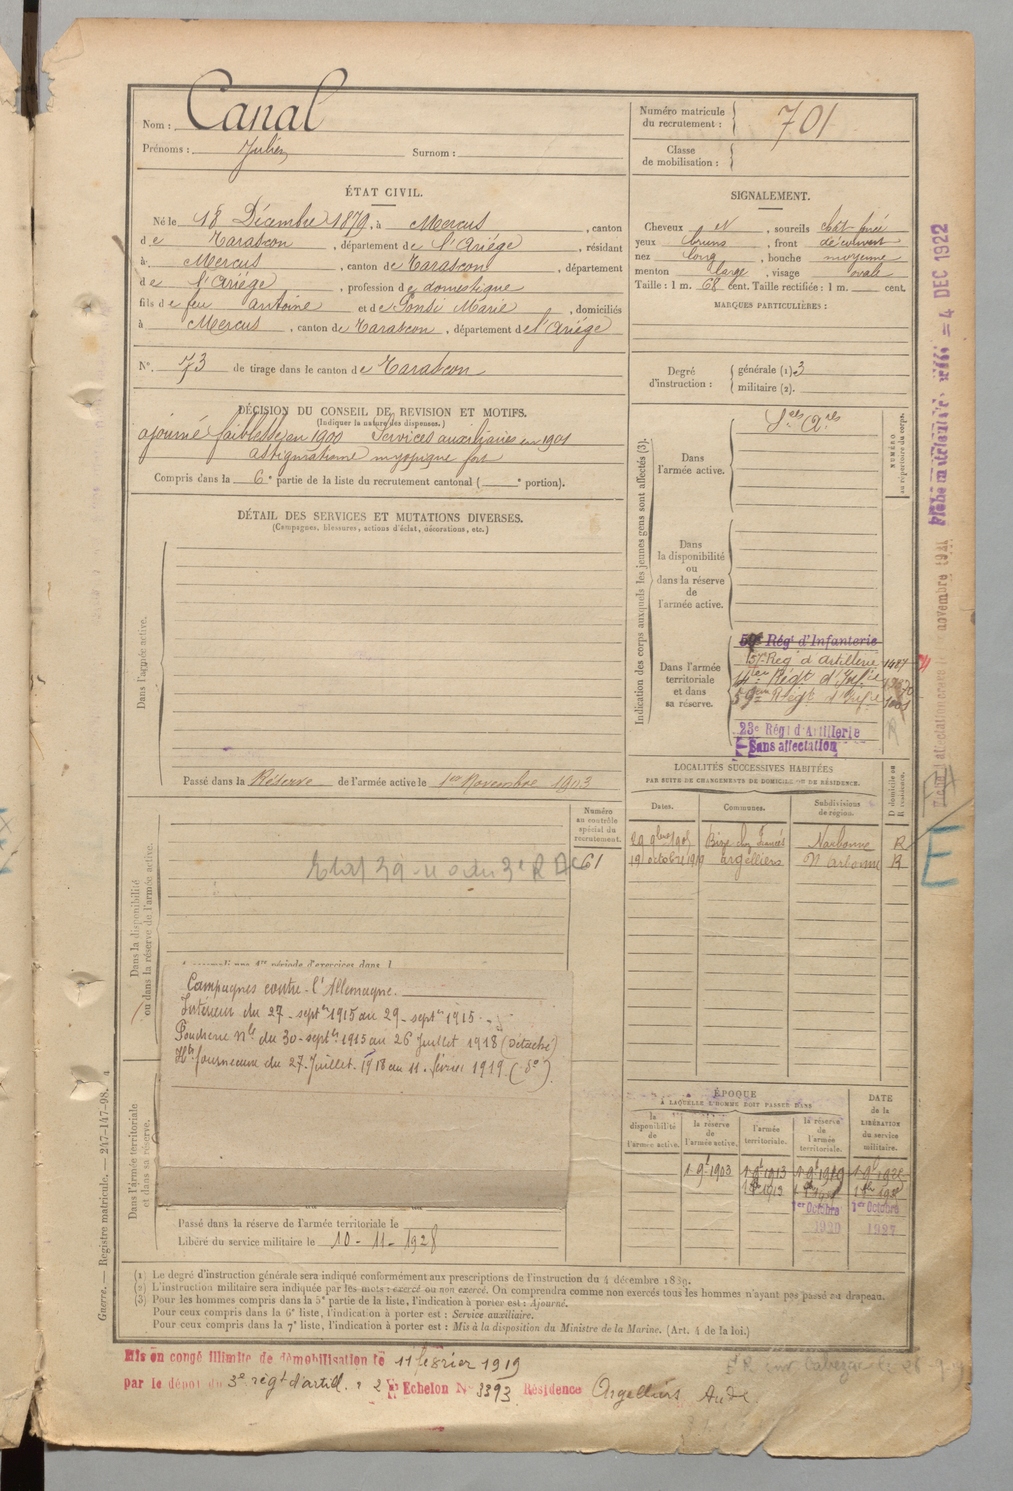 Nom : Canal
Prénoms : Julien Surnom :
ÉTAT CIVIL.
Né le 18 Décembre 1879, à Mercus, canton
de Tarascon, département de l'Ariége, résidant
à Mercus, canton de Tarascon, département
de l'Ariége, profession de domestique
fils de feu antoine et de Ponsi Marie, domiciliés
à Mercus, canton de Tarascon, département de l'Ariége
N° 73 de tirage dans le canton de Tarascon
DÉCISION DU CONSEIL DE REVISION ET MOTIFS.
(Indiquer la nature des dispenses.)
ajourné faiblesse en 1900 Services auxiliaires en 1901
astigmatisme myopique fort
Compris dans la 6e partie de la liste du recrutement cantonal ( e portion).
DÉTAIL DES SERVICES ET MUTATIONS DIVERSES.
(Campagnes, blessures, actions d'éclat, décorations, etc.)
Dans l'armée active.
Passé dans la Réserve de l'armée active le 1er Novembre 1903
Numéro
au contrôle
spécial du
recrutement.
Dans la disponibilité
ou dans la réserve de l'armée active.
61
période d'exercices dans l
Campagnes contre l'Allemagne.
Intérieur du 27 septbre 1915 au 29 septbre 1915
Poudrerie Nle du 30 septbre 1915 au 26 Juillet 1918 (Détaché)
Hts fourneaux du 27 Juillet 1918 au 11 février 1919 (do)
Dans l'armée territoriale
et dans sa réserve.
Passé dans la réserve de l'armée territoriale le
Libéré du service militaire le 10-11-1928
Numéro matricule
du recrutement : 701
Classe
de mobilisation :
SIGNALEMENT.
Cheveux N, sourcils chât foncé
yeux bruns, front découvert
nez long, bouche moyenne
menton large, visage ovale
Taille : 1 m. 68 cent. Taille rectifiée : 1 m. cent.
MARQUES PARTICULIÈRES :
Degré
d'instruction :
générale (1) 3
militaire (2).
Indication des corps auxquels les jeunes gens sont affectés (3).
NUMÉRO
au répertoire du corps.
Dans
l'armée active.
Sces Aires
Dans
la disponibilité
ou
dans la réserve
de
l'armée active.
Dans l'armée
territoriale
et dans
sa réserve.
Régt d'Infanterie
Rég d'Artillerie
Régt d'Infie
59e Régt d'Infie
23e Régt d'Artillerie
Sans affectation
LOCALITÉS SUCCESSIVES HABITÉES
PAR SUITE DE CHANGEMENTS DE DOMICILE OU DE RÉSIDENCE.
Dates. Communes. Subdivisions
de région. D domicile ou
R résidence.
Narbonne R
19 octobre argelliers Narbonne R
ÉPOQUE
A LAQUELLE L'HOMME DOIT PASSER DANS
DATE
de la
LIBÉRATION
du service
militaire.
la
disponibilité
de
l'armée active.
la réserve
de
l'armée active.
l'armée
territoriale.
la réserve
de
l'armée
territoriale.
1 9bre 1903 1 9bre 1913 1 9bre 1919
1er Octobre 1er Octobre
1920 1927
4 DEC 1922
E
Guerre. — Registre matricule. — 247-147-98.
(1) Le degré d'instruction générale sera indiqué conformément aux prescriptions de l'instruction du 4 décembre 1889.
(2) L'instruction militaire sera indiquée par les mots : exercé ou non exercé. On comprendra comme non exercés tous les hommes n'ayant pas passé au drapeau.
(3) Pour les hommes compris dans la 5e partie de la liste, l'indication à porter est : Ajourné.
Pour ceux compris dans la 6e liste, l'indication à porter est : Service auxiliaire.
Pour ceux compris dans la 7e liste, l'indication à porter est : Mis à la disposition du Ministre de la Marine. (Art. 4 de la loi.)
Mis en congé illimité de démobilisation le 11 février 1919
par le dépôt du 3e régt d'artill. 2e Echelon No 3393 Résidence Argelliers Aude.